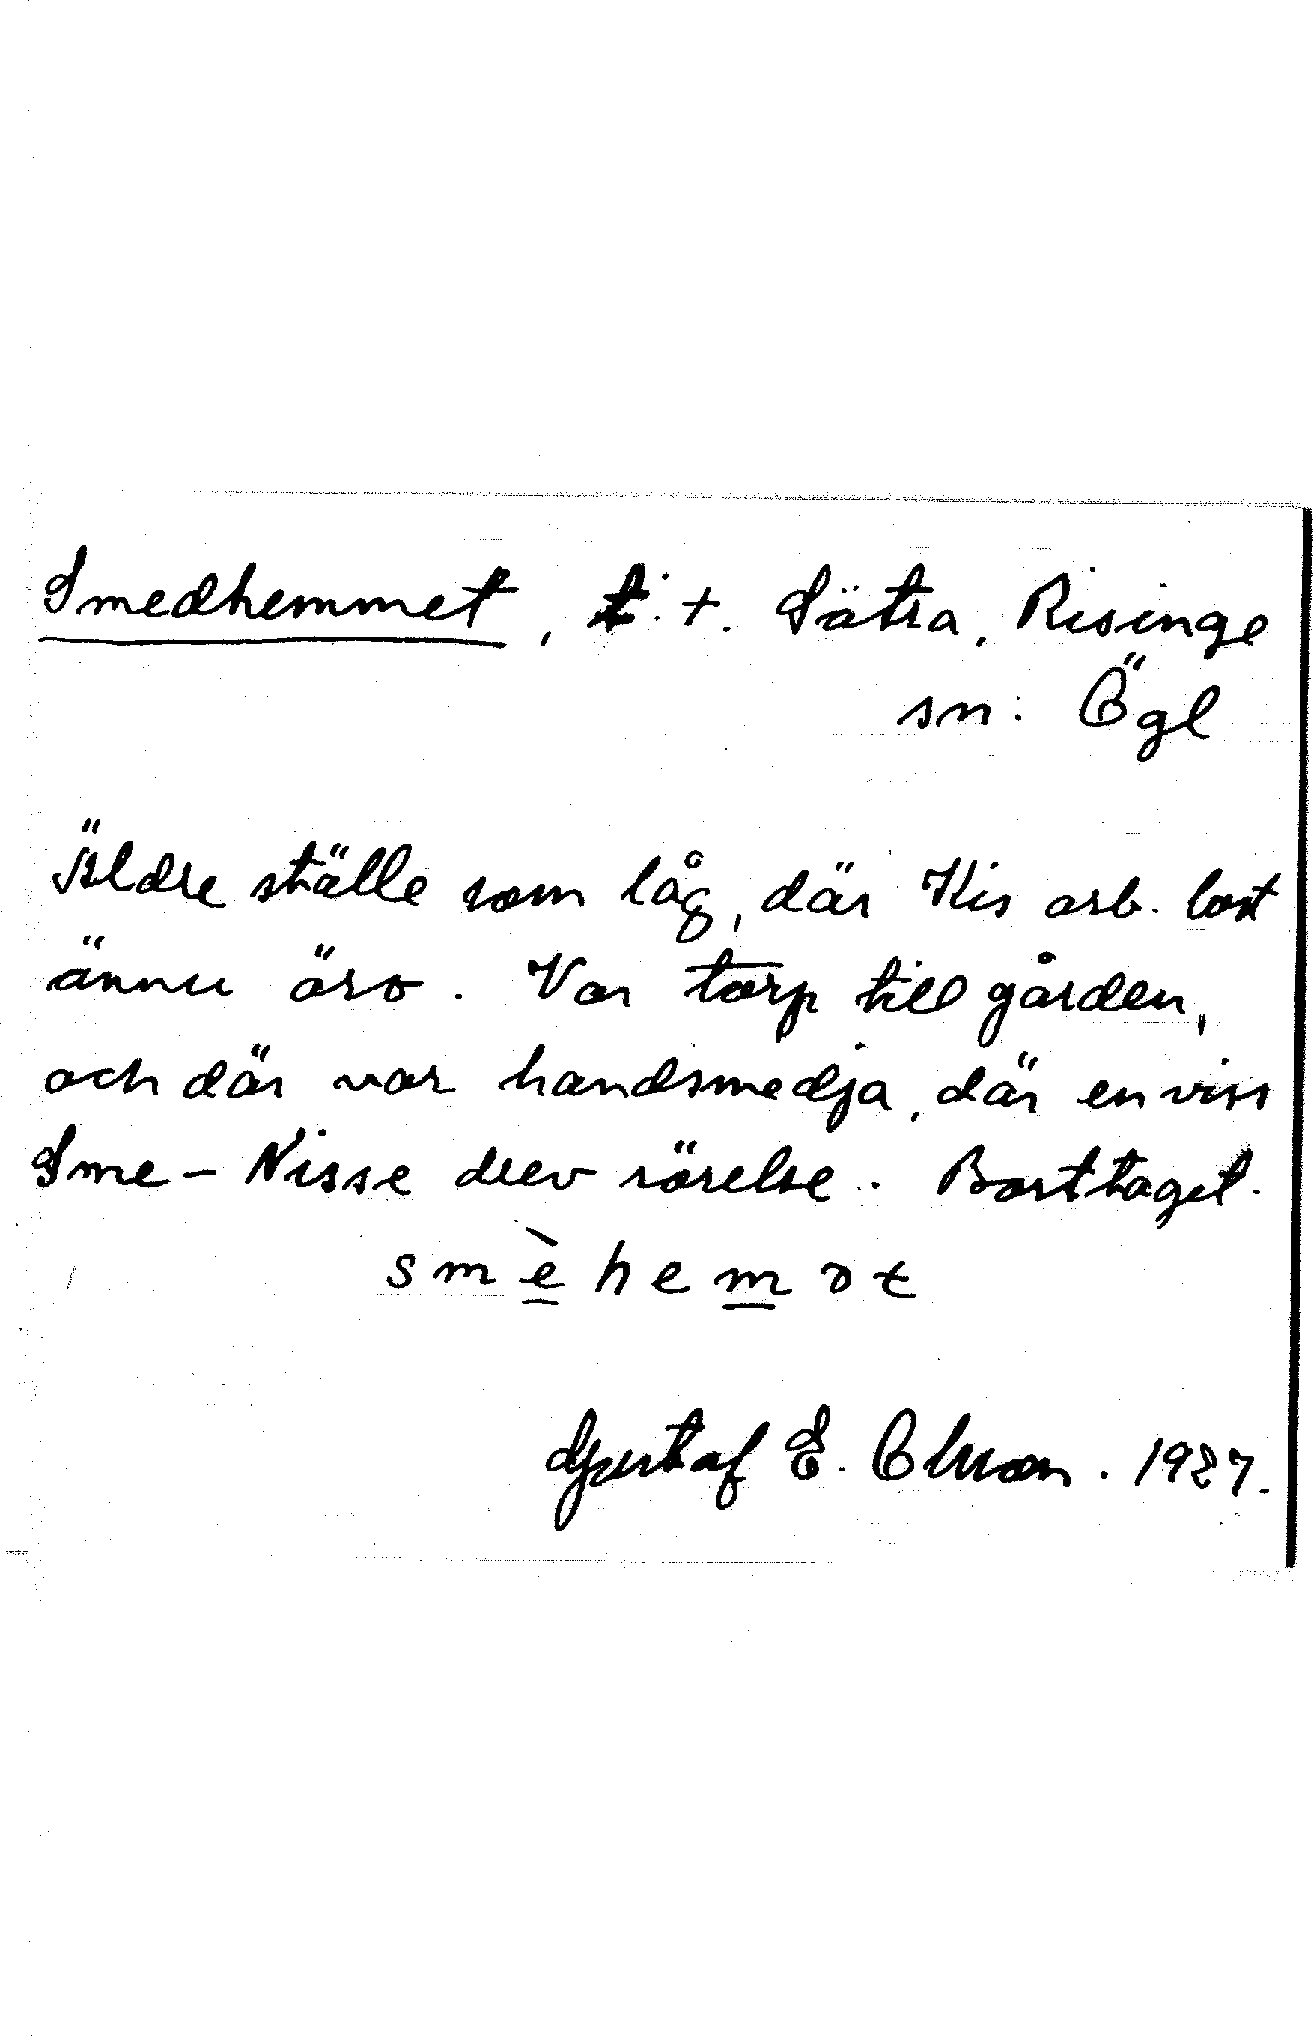 Smedhemmet, t. +. Sätra, Risinge
sn. Ögl
Äldre ställe som låg, där Kis arb. bost
ännu äro. Var torp till gården,
och där var handsmedja, där en viss
Sme-Nisse drev rörelse. Borttaget.
smèhemət
Gustaf E. Olsson. 1927.